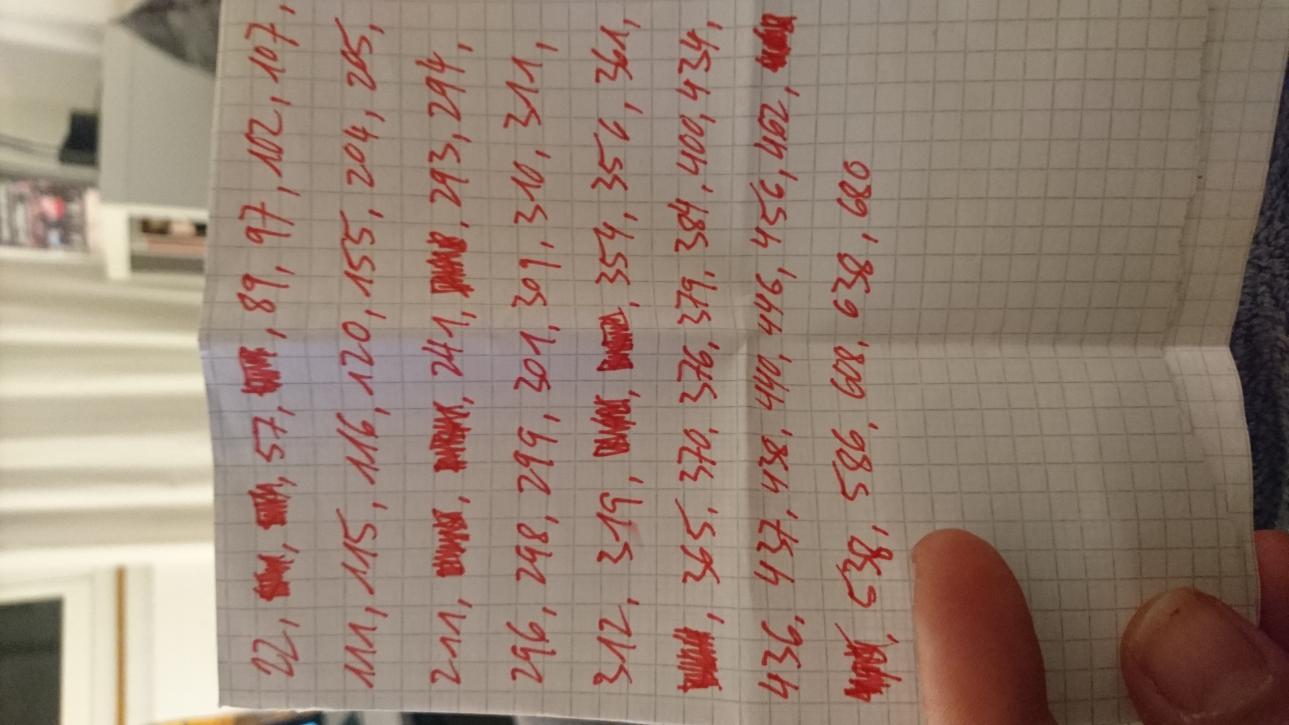 22, 57, 89, 97, 102, 107,
111, 115, 116, 120, 155, 204, 205,
211, 241, 293, 294,
296, 298, 299, 301, 309, 310, 311,
312, 319, 354, 356, 361,
365, 370, 376, 379, 384, 400, 434,
436, 437, 438, 440, 446, 456, 462,
538, 586, 608, 638, 680